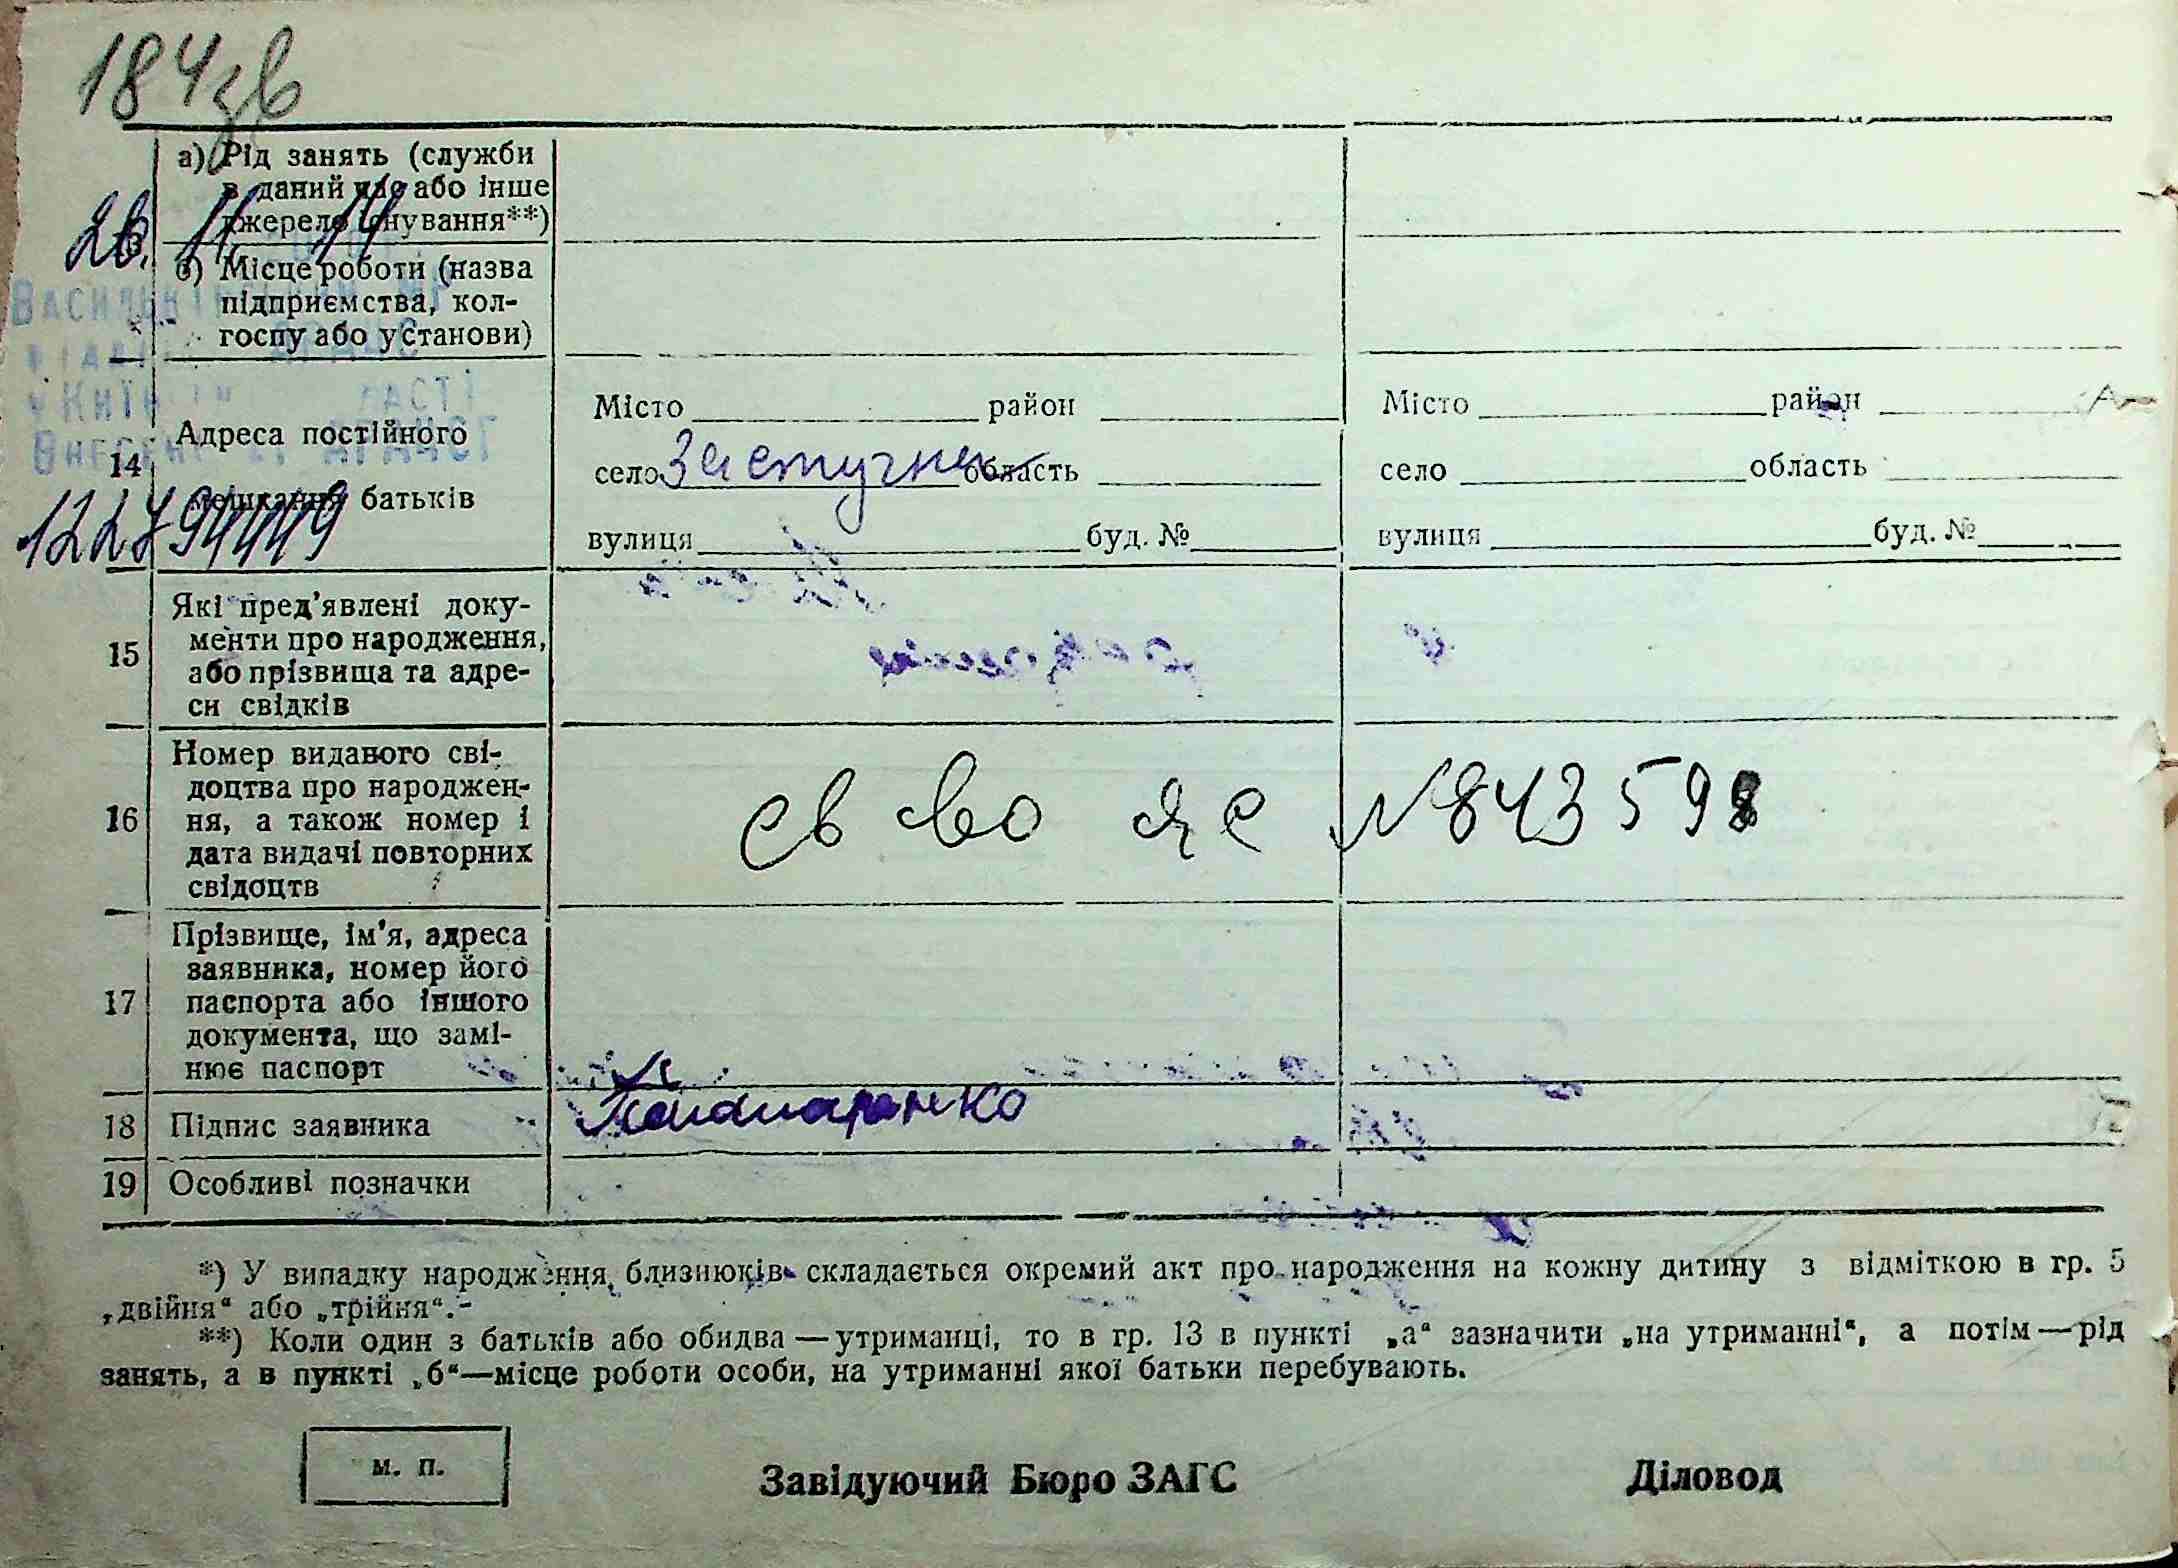 184зв
а) Рід занять (служби
в даний час або інше
джерело існування**)
26. 11. 14
б) Місце роботи (назва
підприємства, кол-
госпу або установи)
14 Адреса постійного
мешкання батьків
Місто район
село Застугна область
вулиця буд. №
Місто район
село область
вулиця буд. №
1227944419
15 Які пред’явлені доку-
менти про народження,
або прізвища та адре-
си свідків
16 Номер виданого сві-
доцтва про народжен-
ня, а також номер і
дата видачі повторних
свідоцтв
св во яе №843598
17 Прізвище, ім’я, адреса
заявника, номер його
паспорта або іншого
документа, що замі-
нює паспорт
18 Підпис заявника
19 Особливі позначки
*) У випадку народження близнюків складається окремий акт про народження на кожну дитину з відміткою в гр. 5
„двійня“ або „трійня“.
**) Коли один з батьків або обидва—утриманці, то в гр. 13 в пункті „а“ зазначити „на утриманні“, а потім—рід
занять, а в пункті „б“—місце роботи особи, на утриманні якої батьки перебувають.
м. п.
Завідуючий Бюро ЗАГС Діловод